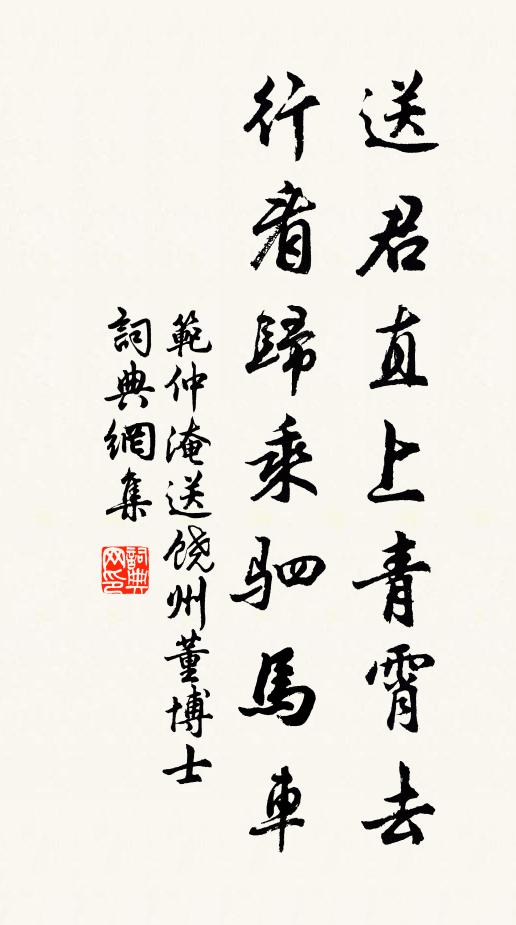 送君直上青霄去
行看歸乘驷馬車
範仲淹送饶州董博士
詞典網集
詞典网印